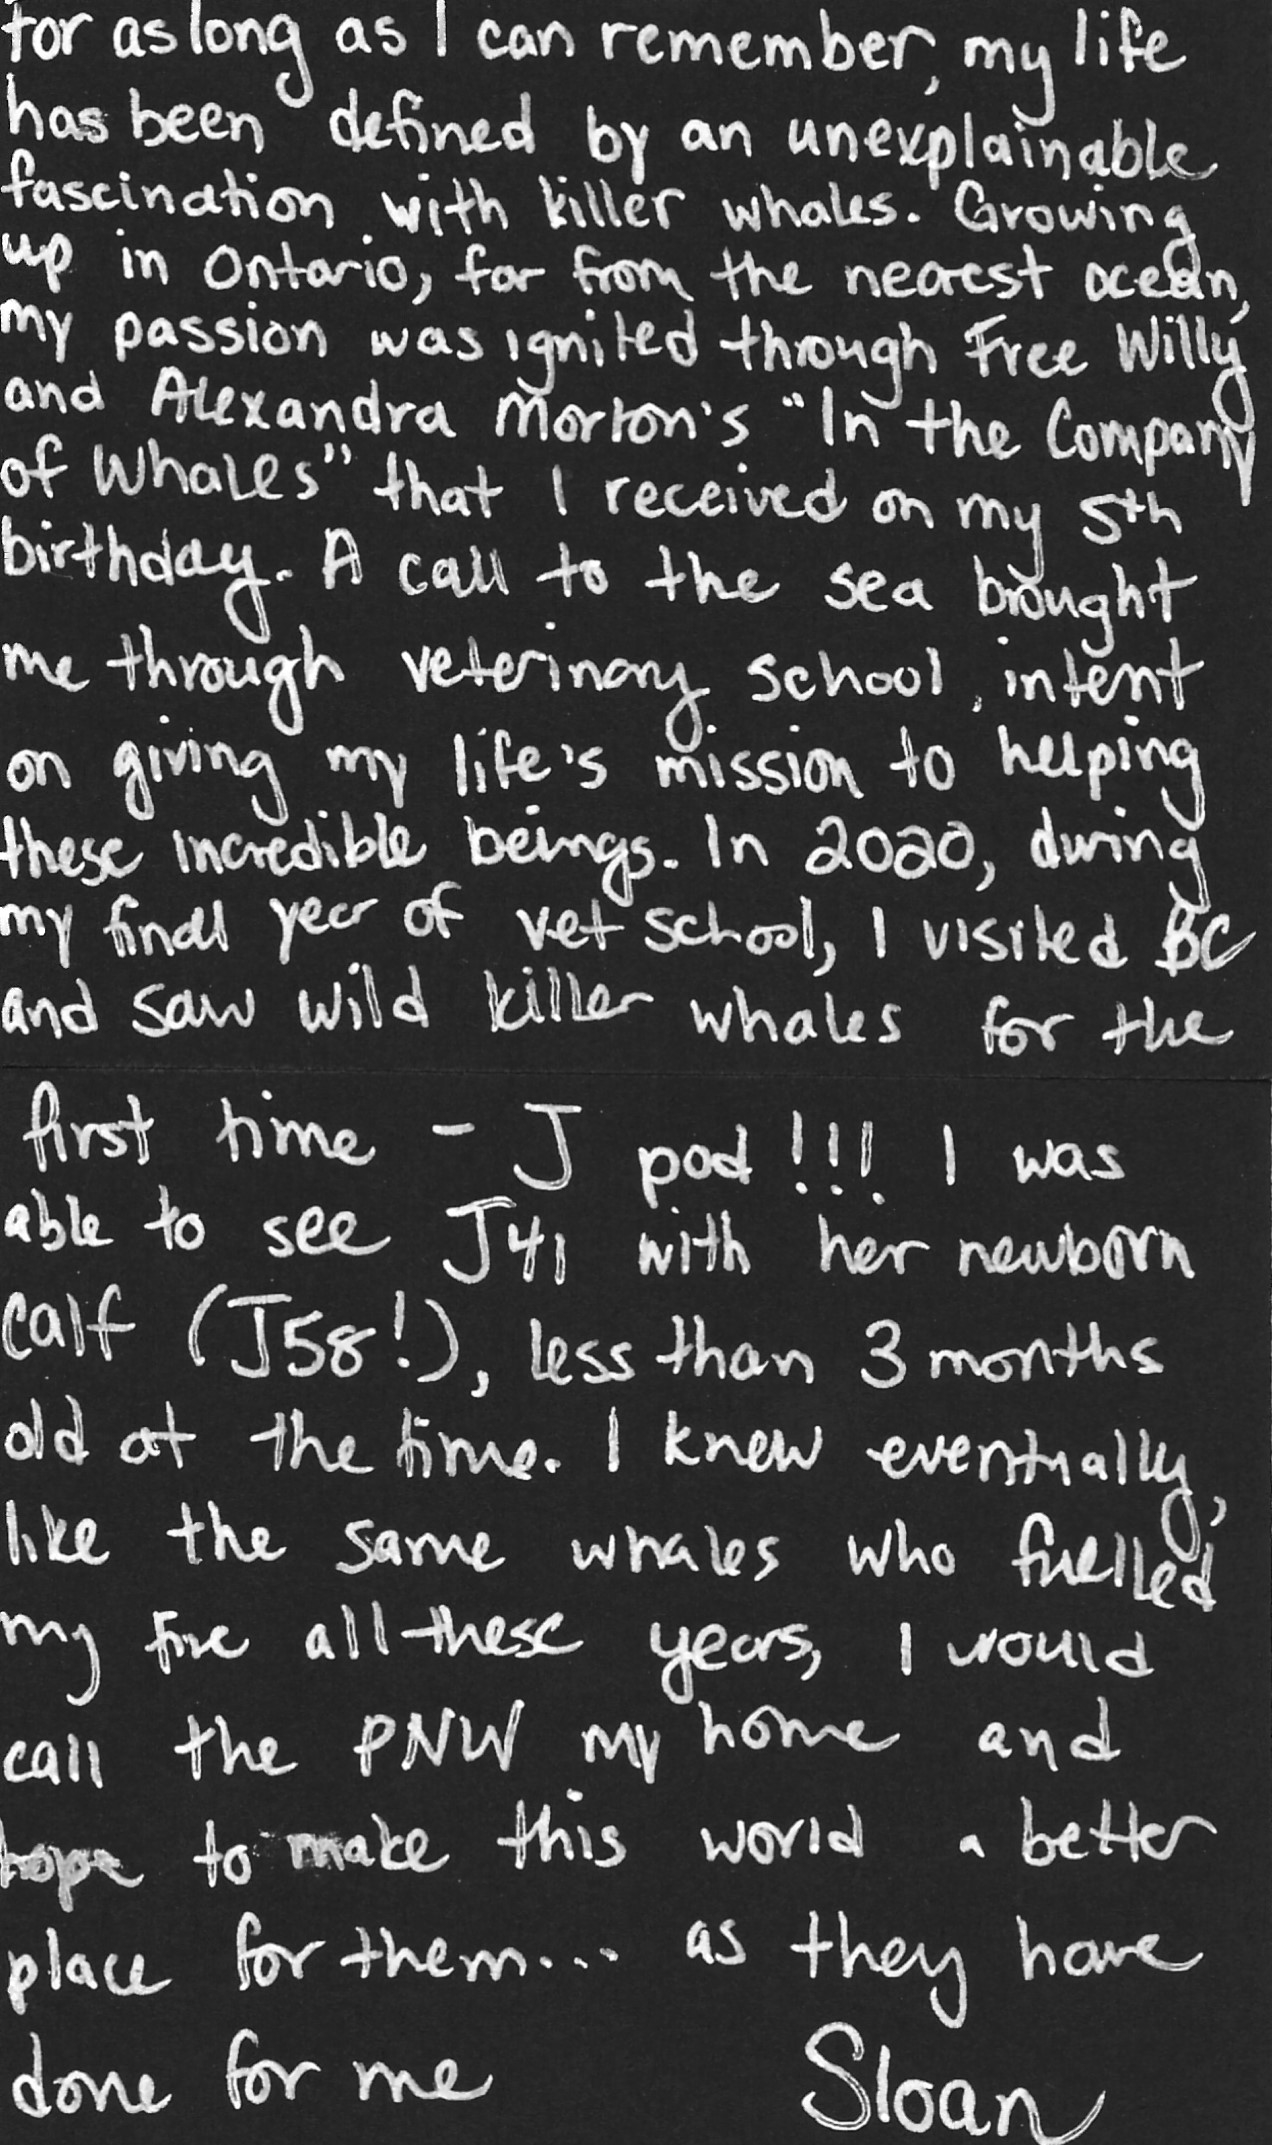 for as long as I can remember, my life
has been defined by an unexplainable
fascination with killer whales. Growing
up in Ontario, far from the nearest ocean,
my passion was ignited through Free Willy
and Alexandra Morton's "In the Company
of Whales" that I received on my 5th
birthday. A call to the sea brought
me through veterinary school, intent
on giving my life's mission to helping
these incredible beings. In 2020, during
my final year of vet school, I visited BC
and saw wild killer whales for the
first time - J pod!!! I was
able to see J41 with her newborn
calf (J58!), less than 3 months
old at the time. I knew eventually,
like the same whales who fuelled
my fire all these years, I would
call the PNW my home and
hope to make this world a better
place for them... as they have
done for me Sloan